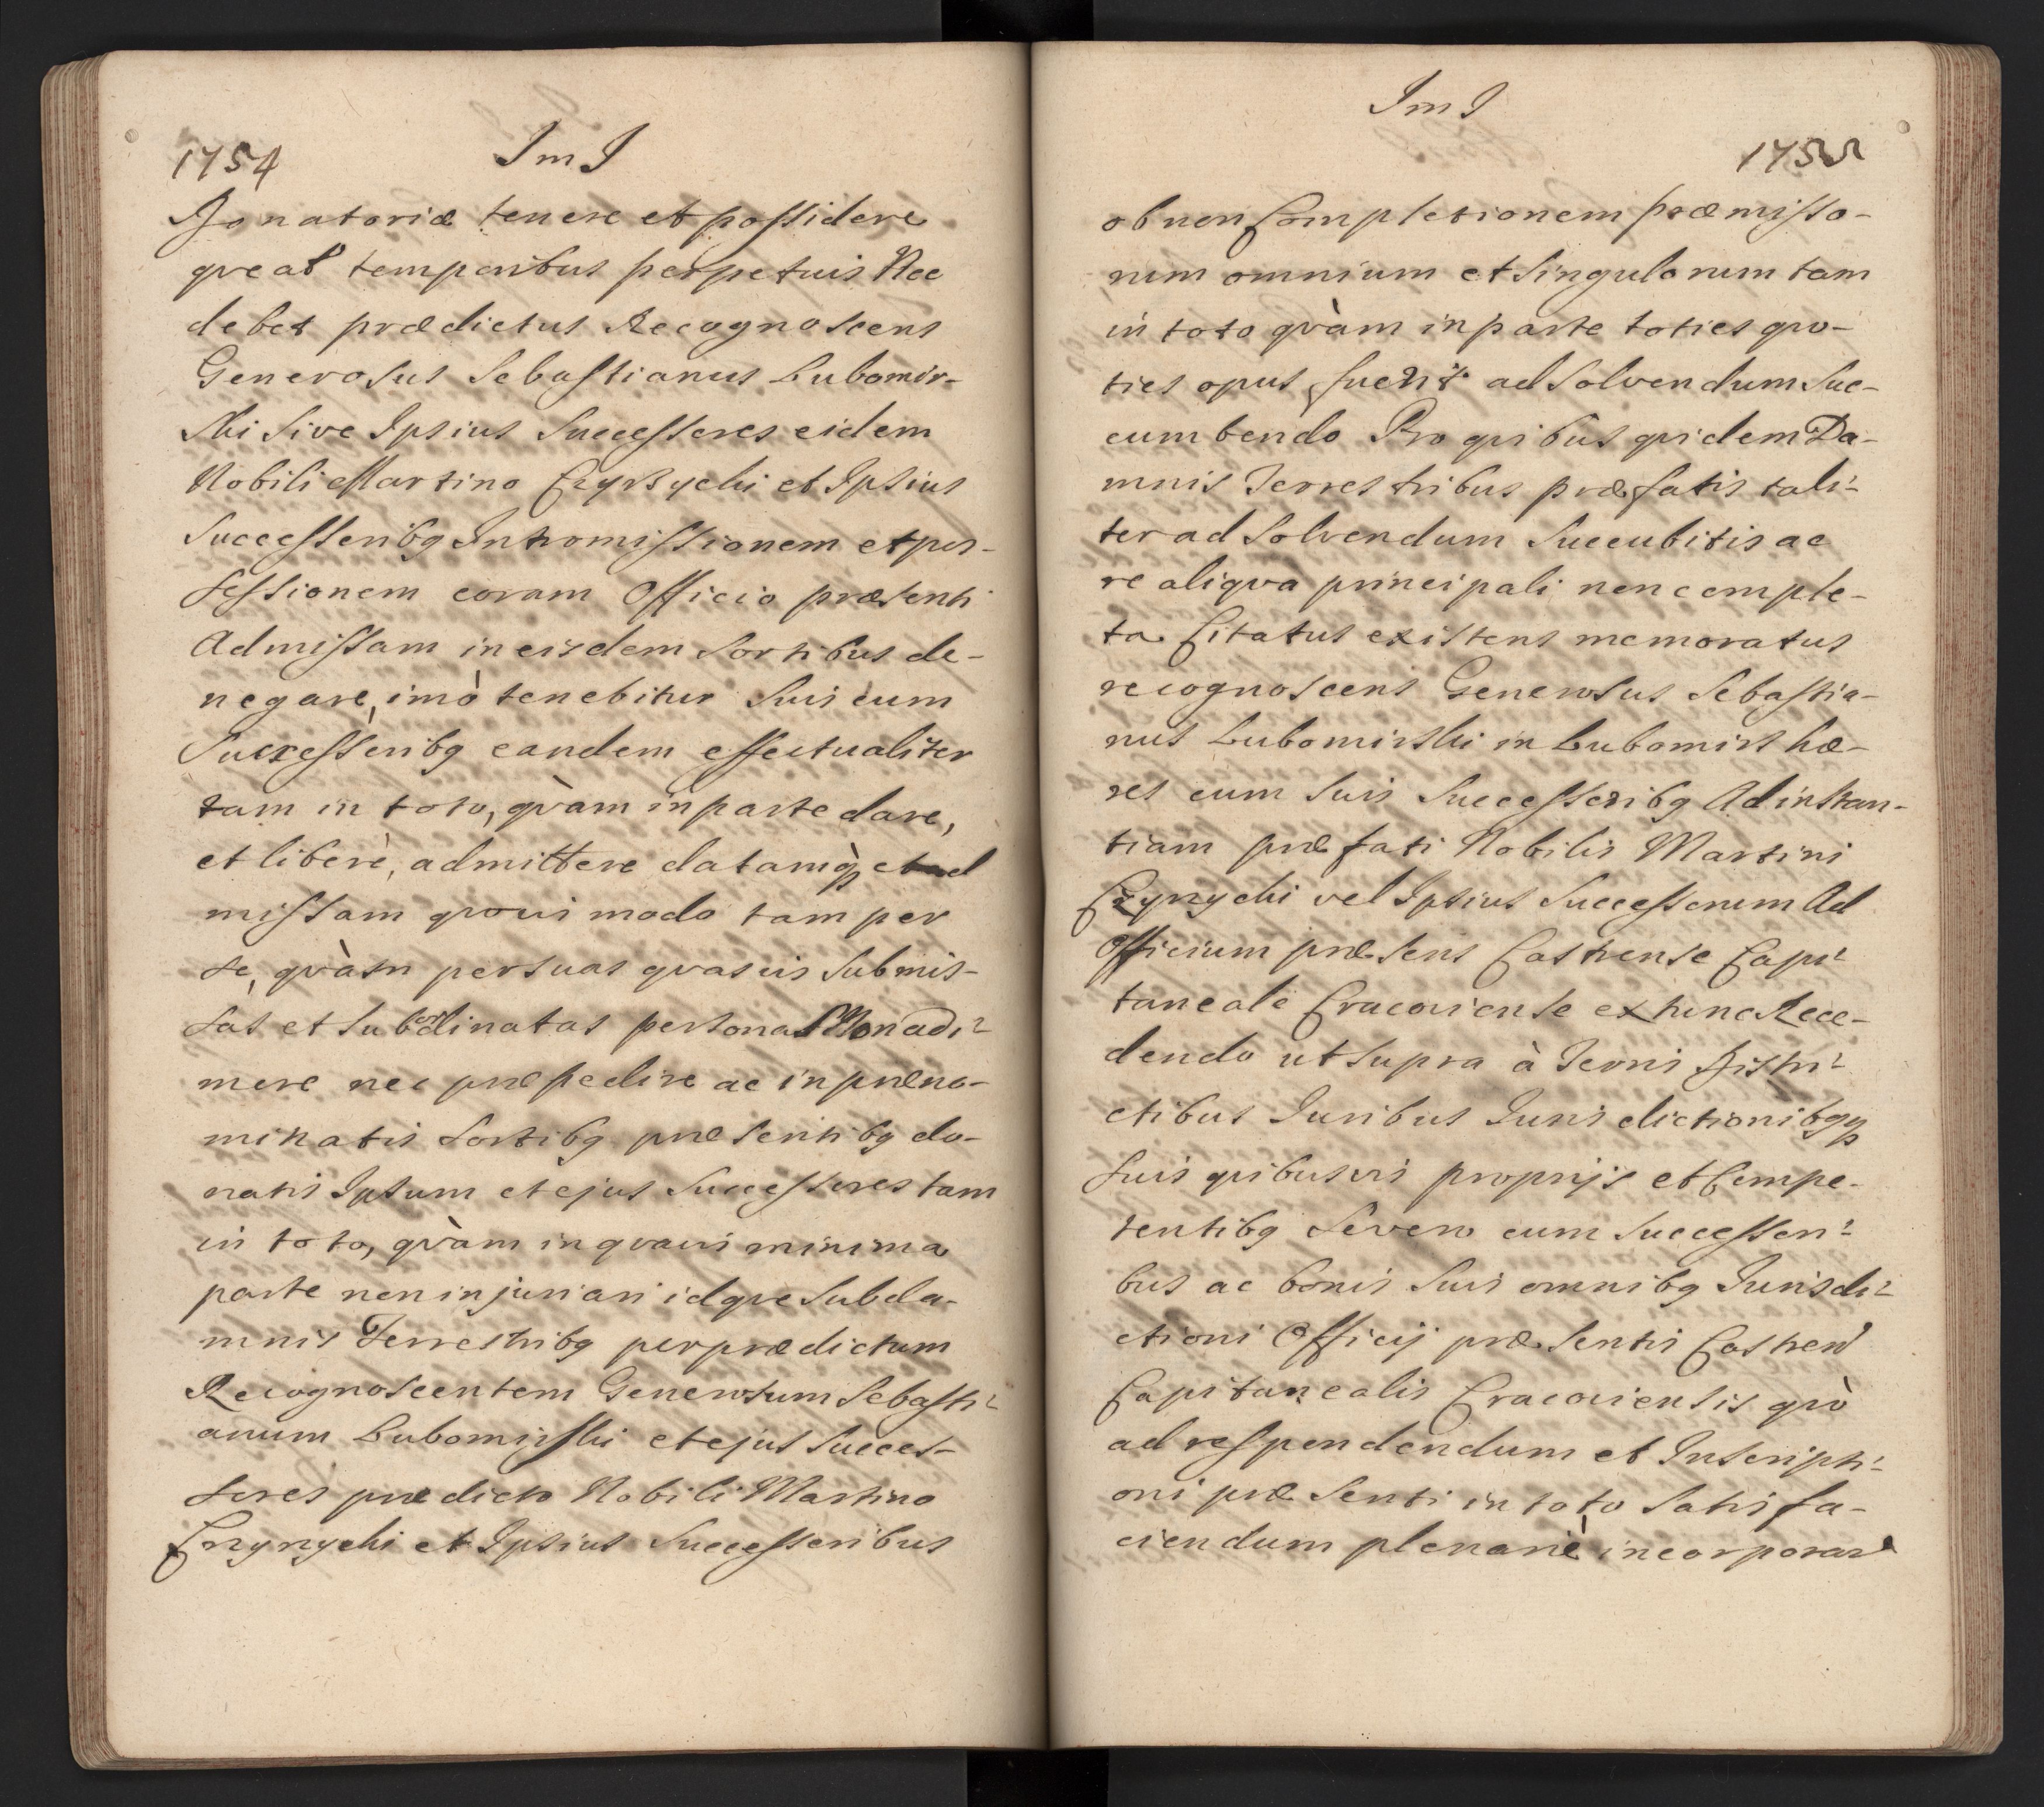 1754
ImJ
Donatoriæ tenere et possidere
qveat temporibus perpetuis Nec
debet prædictus Recognoscens
Generosus Sebastianus Lubomir-
ski sive Ipsius Successores eidem
Nobili Martino et Ipsius
Successoribq Intromissionem et pos-
sessionem coram Officio præsenti
Admissam in eisdem Sortibus de-
negare, imò tenebitur Suis cum
Successoribq eandem effectualiter
tam in toto, qvàm in parte dare,
et liberè, admittere datamq et ad
missam qvovis modo tam per
se, qvàm per suas qvasvis Submis-
sas et Subordinatas personas Non adi-
mere nec præpedire ac in præno-
minatis Sortibq præsentibq do-
natis Ipsum et ejus Successores tam
in toto, qvàm in qvavis minima
parte non injuriari idqve Sub da-
mnis Terrestribq per prædictum
Recognoscentem Generosum Sebasti-
anum Lubomirski et ejus Succes-
sores prædicto Nobili Martino
Czyrzycki et Ipsius Successoribus
ImJ
1755
ob non Completionem præmisso-
rum omnium et Singulorum tam
in toto qvàm in parte toties qvo-
ties opus fuerit ad Solvendum Suc-
cumbendo Pro qvibus qvidem Da-
mnis Terrestribus præfatis tali-
ter ad Solvendum Succubitis ac
re aliqva principali non comple-
ta Citatus existens memoratus
recognoscens Generosus Sebastia-
nus Lubomirski in Lubomirs hæ-
res cum Suis Successoribq Ad instan-
tiam præfati Nobilis Martini
Czyrzycki vel Ipsius Successorum Ad
Officium præsens Castrense Capi-
taneale Cracoviense ex hunc Rece-
dendo ut supra à Terris Distri-
ctibus Iuribus Iuris dictionibqq
Suis qvibusvis proprijs et Compe-
tentibq Se vero cum Successori-
bus ac bonis Suis omnibq Iurisdi-
ctioni Officij præsentis Castren
Capitanealis Cracoviensis qvò
ad respondendum et Inscripti-
oni præsenti in toto Satisfa-
ciendum plenariè incorporare